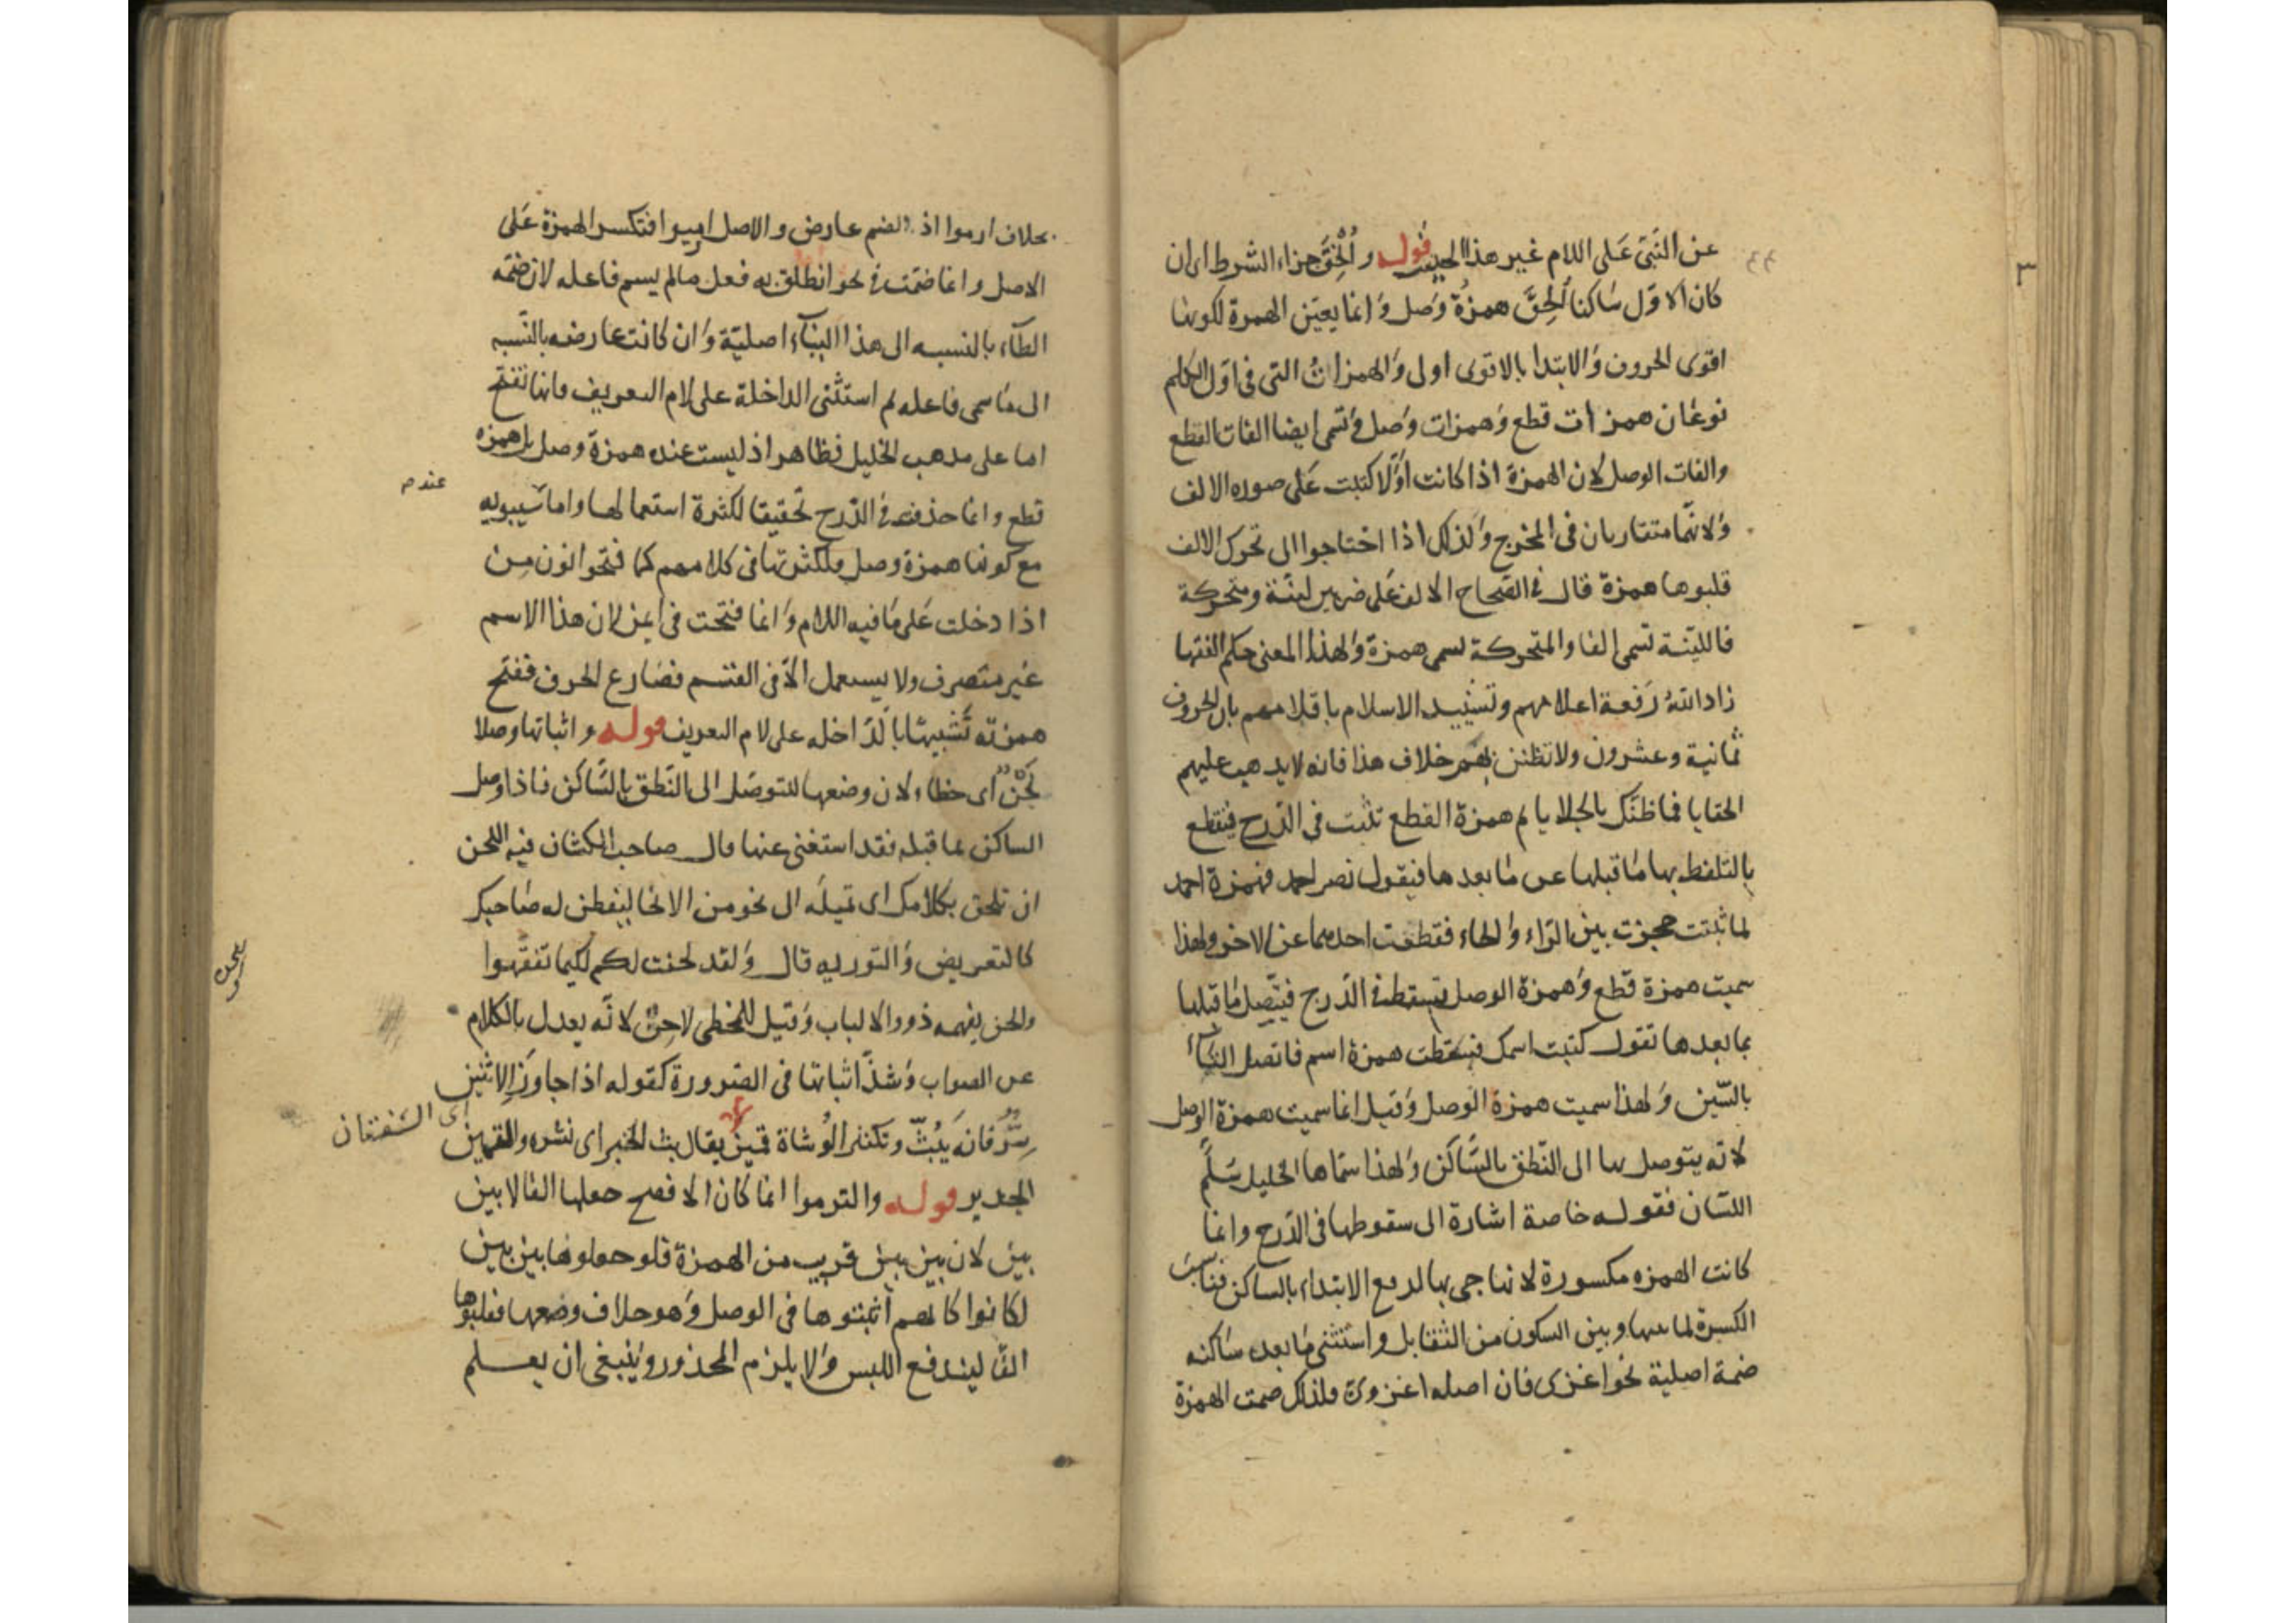 عن النَّبىّ عَلى اللام غير هذا الحديث قوله و اُلْحِقَ جزاء الشرط اى ان
كان الاوّل سَاكنا اُلحِقَ همزةُ وَصل وَانما يعيّن الهمزة لكونها
اقوى الحروف وَالابتدا بالاقوى اولى وَالهمزاتُ التى فى اوّل الكلم
نوعَان همزات قطع وَهمزات وَصل وَتسمى ايضا الفات القطع
والفات الوصل لان الهمزة اذا كانت اوّلا كتبت عَلى صوره الالف
وَلانهّما متقاربان فى المخرج وَلذلك اذا احتاجوا الى تحرك الالف
قلبوها همزة قال فى الصّحاح الالف عَلى ضربين لينّة ومتحركة
فاللينّة تسمى الفا والمتحركة تسمى همزة وَلهذا المعنى حكم الفقها
زاد اللهُ رَفعة اعلامهم وتشييد الاسلام باقلامهم بان الحروف
ثمانية وعشرون ولا تظنن بهم خلاف هذا فانه لا يذهب عليهم
الخفايا فما ظنّك بالجلايا ثم همزة القطع تثبت فى الدّرج فيقطع
بالتلفظ بها مَا قبلها عن مَا بعدها فيقول نصر احمد فهمزة احمد
لما ثبتت حجزت بين الرّاء وَالحاء فقطعت احدهما عن الاخر ولهذا
سميت همزة قطع وَهمزة الوصل تسقط فى الدّرج فيتّصل مَا قبلها
بما بعدها تقول كتبت اسمك فسقطت همزة اسم فاتصل التّاء
بالسّين وَلهذا سميت همزة الوصل وَقيل انما سميت همزة الوصل
لانه يتوصل بها الى النّطق بالسّاكن وَلهذا سمّاها الخليل سَلّم
اللسّان فقوله خاصة اشارة الى سقوطها فى الدّرج وانما
كانت الهمزه مكسورة لانها جى بها لدفع الابتداء بالساكن فناسبَ
الكسرة لما بينها وبين السكون من التقابل واستثنى مَا بعد سَاكنه
ضمة اصلية نحو اغزى فان اصله اغزوى فلذلك ضمت الهمزة
بخلاف ارموا اذ الضم عارض والاصل ارميوا فتكسر الهمزة عَلى
الاصل وانما ضمّت فى نحو انطلق به فعل ما لم يسم فاعله لان ضمّه
الطآء بالنسبه الى هذا البنآء اصليّة وَان كانت عارضه بالنّسبه
الى مَا سمى فاعله ثم استثنى الداخلة على لام التعريف فانها تفتح
اما على مذهب الخليل فظاهر اذ ليست عنده همزة وصل بل همزه
عندهم
قطع وانما حذفت فى الدّرج تخفيفا لكثرة استعمالها واما سيبويه
مع كونها همزة وصل فلكثرتها فى كلامهم كما فتحوا نون مِن
اذا دخلت عَلى مَا فيه اللام وَانما فتحت فى ايمن لان هذا الاسم
غير متصرف ولا يستعمل الاّ فى القسم فضارع الحرف ففتح
همزته تَشبيهًا بالدّاخله على لام التعريف قوله واثباتها وصلا
لَحْنٌ اى خطاء لان وضعها للتوصّل الى النّطق بالسّاكن فاذا وصل
الساكن بما قبله فقد استغنى عنها قال صاحب الكشاف فيه اللحن
ان تلحن بكلامك اى تميله الى نحو من الانحا ليفطن له صَاحبك
كالتعريض وَالتوريه قال وَلقد لحنت لكم لكيما تفقهوا
واللحن يفهمه ذووا الالباب وَقيل للمخطى لاحِنٌ لانّه يعدل بالكلام
عن الصواب وَشذّ اثباتها فى الضرورة كقوله اذا جاوَز الاثنين
اى الشفتان
سِرُّ فانه يَبُثّ وتكثير الوُشاة قمين يقال بث الخبر اى نشره والقمين
الجدير قوله والتزموا انما كان الافصح جعلها الفا لا بين
بين لان بين بين قريب من الهمزة فلو جعلوها بين بين
لكانوا كانهم أثبتوها فى الوصل وَهو خلاف وضعها فقلبوها
الفًا ليندفع اللبس وَلا يلزم المحذور وَينبغى ان يعلم